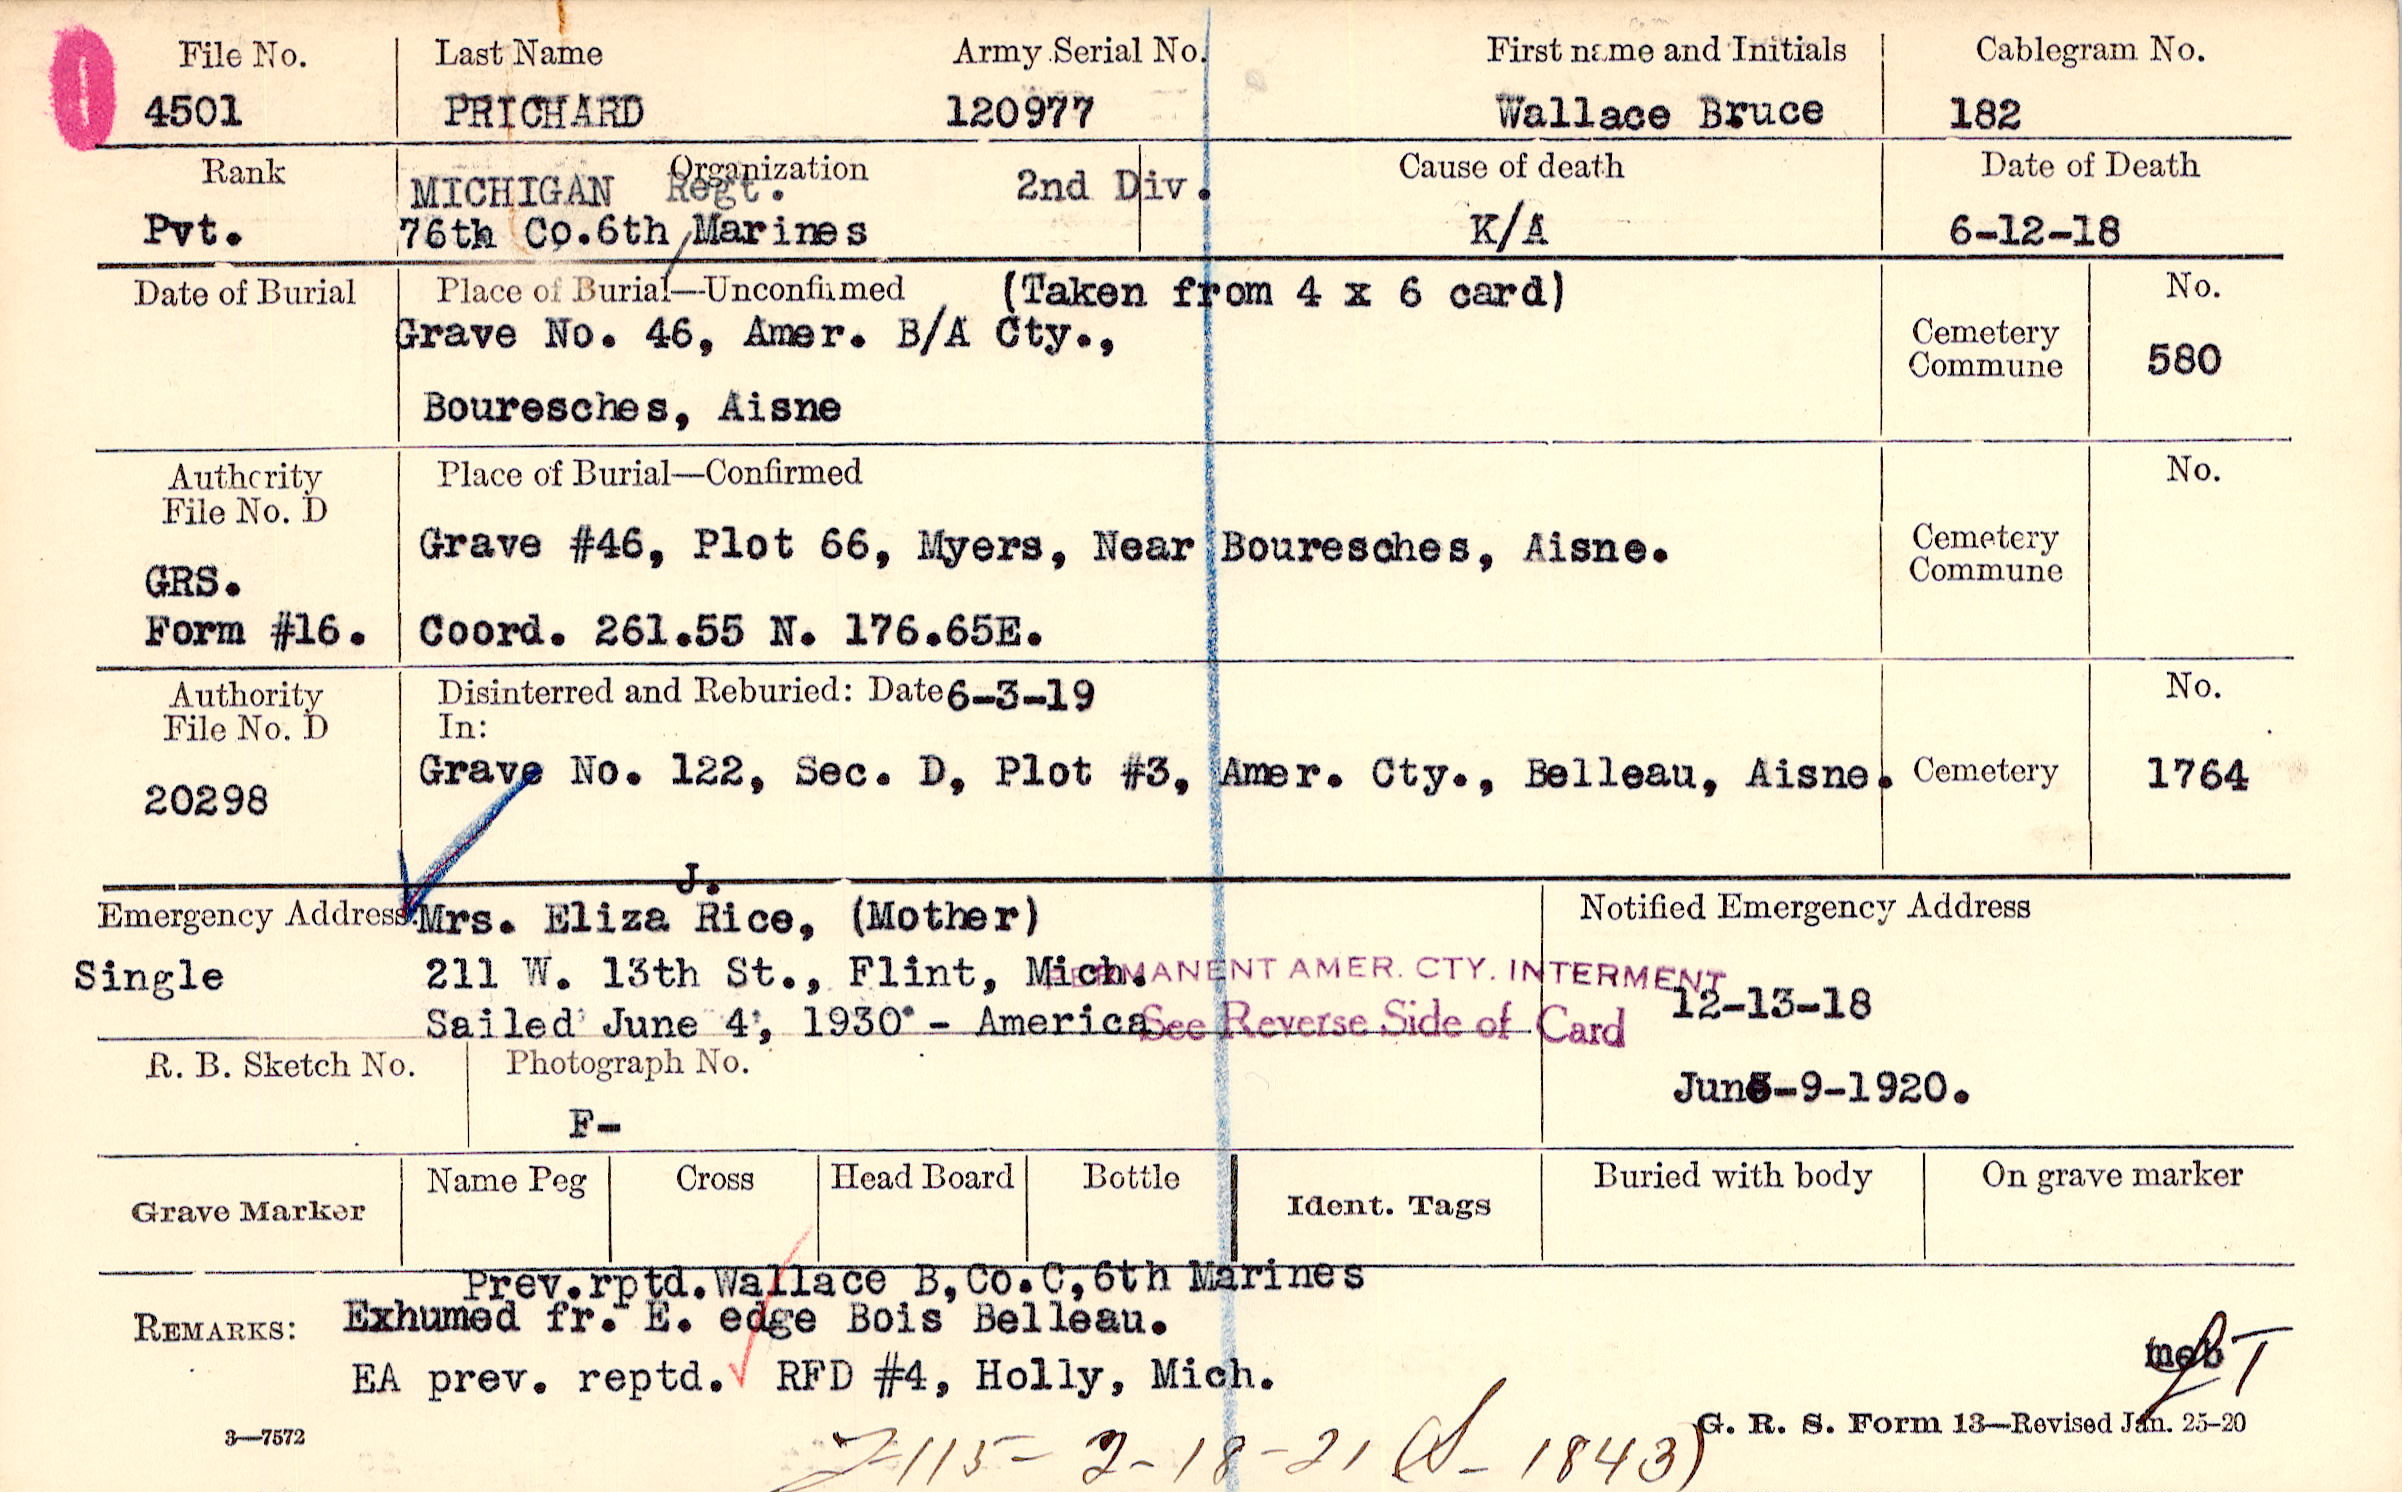 File No. Last Name Army Serial No. First name and Initials Cablegram No.
4501 PRICHARD 120977 Wallace Bruce 182
Rank Organization Cause of death Date of Death
MICHIGAN Regt. 2nd Div.
Pvt. 76th Co.6th Marines K/A 6-12-18
Date of Burial Place of Burial—Unconfirmed (Taken from 4 x 6 card) No.
Grave No. 46, Amer. B/A Cty., Cemetery
Commune 580
Bouresches, Aisne
Authority Place of Burial—Confirmed No.
File No. D
Grave #46, Plot 66, Myers, Near Bouresches, Aisne. Cemetery
Commune
GRS.
Form #16. Coord. 261.55 N. 176.65E.
Authority Disinterred and Reburied: Date 6-3-19 No.
File No. D In:
Grave No. 122, Sec. D, Plot #3, Amer. Cty., Belleau, Aisne. Cemetery 1764
20298
J.
Emergency Address: Mrs. Eliza Rice, (Mother) Notified Emergency Address
Single 211 W. 13th St., Flint, Mich. PERMANENT AMER. CTY. INTERMENT
12-13-18
Sailed June 4, 1930 - America See Reverse Side of Card
R. B. Sketch No. Photograph No.
June-9-1920.
F-
Grave Marker Name Peg Cross Head Board Bottle Ident. Tags Buried with body On grave marker
Prev.rptd.Wallace B,Co.C,6th Marines
REMARKS: Exhumed fr. E. edge Bois Belleau.
meb
EA prev. reptd. RFD #4, Holly, Mich.
3—7572 G. R. S. Form 13—Revised Jan. 25-20
-115- 2-18-21 (S- 1843)